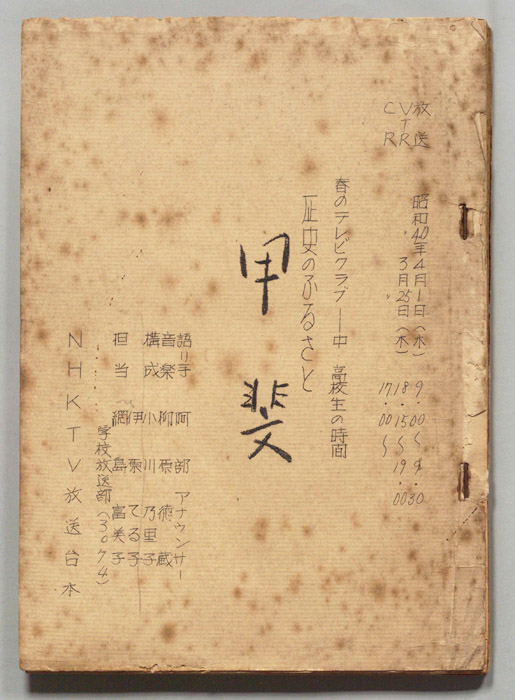 放送 昭和40年4月1日(木) 9.00〜9.30
VTR 3月25日(木) 18.15〜19.00
CR 〃 17.00〜
春のテレビクラブ―中 高校生の時間
歴史のふるさと
甲斐
語り手 阿部 アナウンサー
音楽 柳原 徳蔵
構成 小川 乃里子
伊 てる子
担当 網島 富美子
学校放送部(3074)
NHKTV放送台本